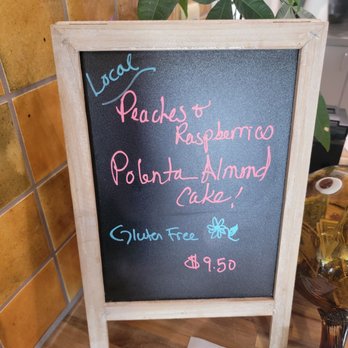 Local
Peaches &
Raspberries
Polenta Almond
Cake!
Gluten Free
$9.50